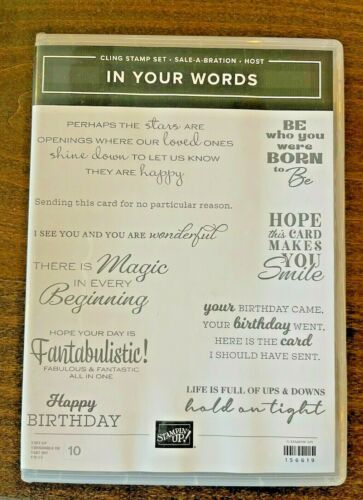 CLING STAMP SET • SALE-A-BRATION • HOST
IN YOUR WORDS
PERHAPS THE stars ARE
OPENINGS WHERE OUR loved ONES
shine down TO LET US KNOW
THEY ARE happy
Sending this card for no particular reason.
I SEE YOU AND YOU ARE wonderful
THERE IS Magic
IN EVERY
Beginning
HOPE YOUR DAY IS
Fantabulistic!
FABULOUS & FANTASTIC
ALL IN ONE
Happy
BIRTHDAY
BE
who you
were
BORN
to
Be
HOPE
this CARD
MAKES
YOU
Smile
your BIRTHDAY CAME,
YOUR birthday WENT,
HERE IS THE card
I SHOULD HAVE SENT.
LIFE IS FULL OF UPS & DOWNS
hold on tight
10
STAMPIN' UP!
156619